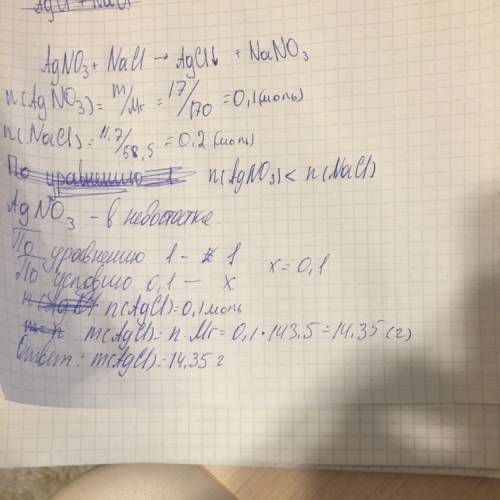 AgCl + NaCl
AgNO₃ + NaCl → AgCl↓ + NaNO₃
n(AgNO₃) = m/Mr = 17/170 = 0,1 (моль)
n(NaCl) = 11.7/58,5 = 0.2 (моль)
По уравнению n(AgNO₃) < n(NaCl)
AgNO₃ - в недостатке.
По уравнению 1 - 1
По условию 0,1 — x x = 0,1
n(AgCl) = 0,1 моль
m(AgCl) = n · Mr = 0,1 · 143,5 = 14,35 (г)
Ответ: m(AgCl) = 14,35 г